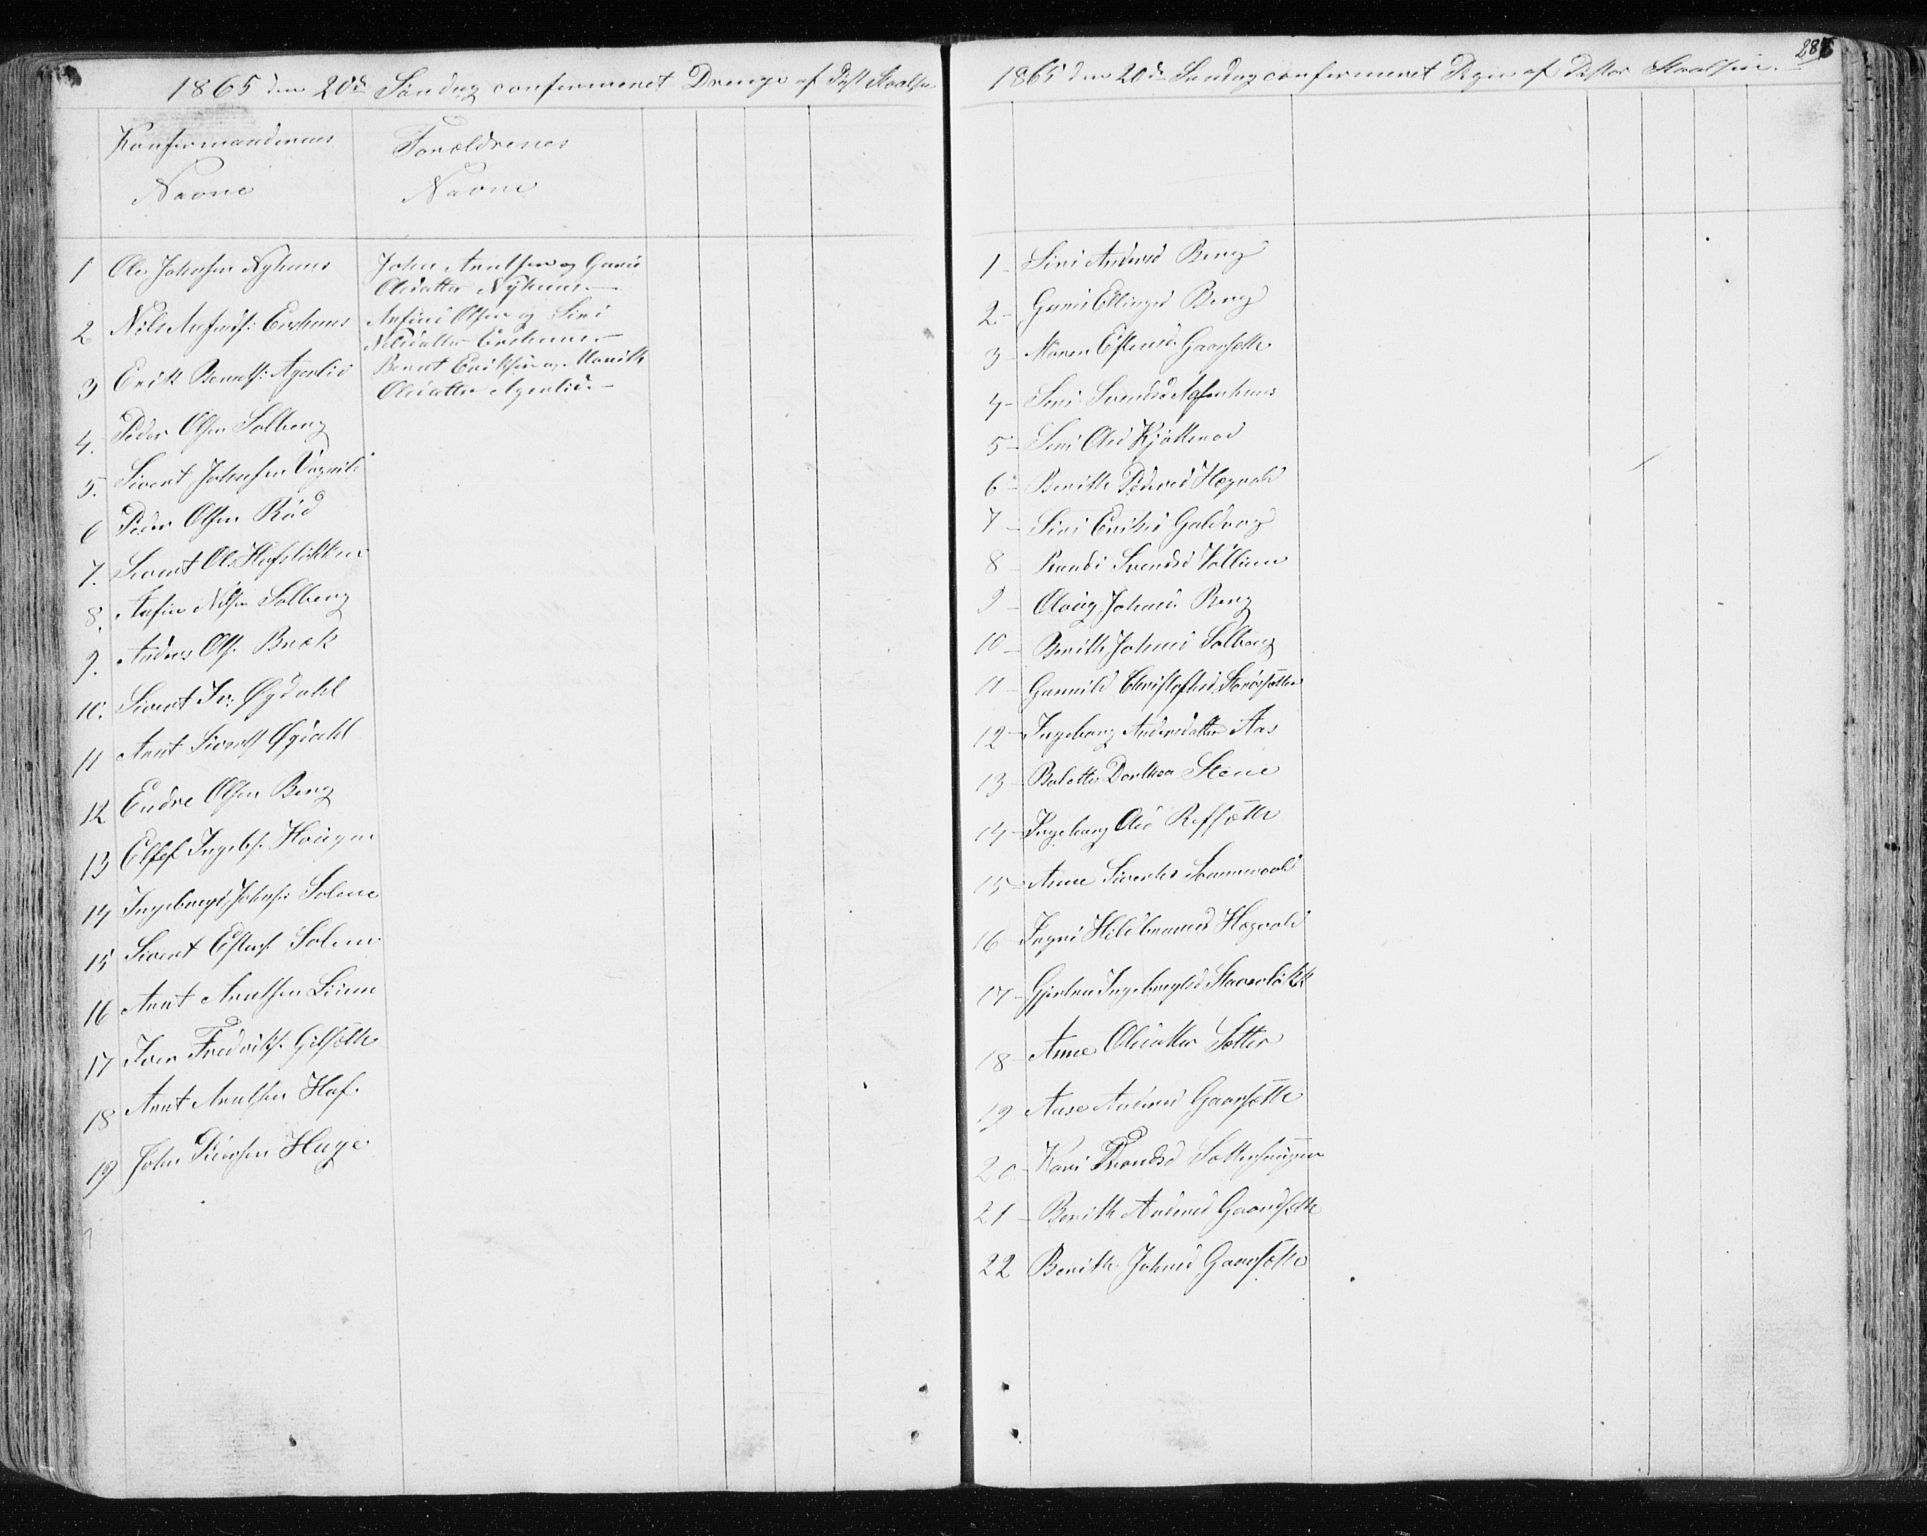 1865 den 20de Søndag confirmeret Drenge af Past
Konfirmandernes
Navne
Forældrenes
Navne
1 Ole Johnsen Nyhuus
John Arntsen og Guri
Olesdatter Nyhuus.—
2 Nils Anfinds: Eershuus
Anfind Olsen og Siri
Nilsdatter Eershuus.—
3 Erik Berntsf: Agerlid
Bernt Eriksen og Marith
Olesdatter Agerlid.—
4. Peder Olsen Solberg
5. Sivert Johnsen
6 Peder Olsen Rød
7. Sivert Ols Hofslikken
8. Anfin Nilsen Solberg
9. Anders Ols. Bræk
10. Sivert Iv: Øydahl
11 Arnt Sivertss Øydahl
12 Endre Olsen Berg
13 Ellef Ingebr. Hougen
14 Ingebrigt Johnsen Solem
15 Sivert Estens. Solem
16 Arnt Arntsen Liien
17 Iver Fredriks. Gilsætte
18 Arnt Arntsen Hof.
19 John Siversen Huge
286
1865 den 20de Søndag confirmeret Piger af Pastor
1 – Siri Andersd Berg
2 – Guri Ellingsd Berg
3 – Maren Estensd. Gaarsætte
4 – Siri Svendsd
5 – Siri Olsd Kjøtterød
6 – Berith Pedersd Hægvold
7 – Siri Eriksd Goldvog
8 – Randi Svendsd Vollum
9 – Olaug Johnsd. Berg
10 – Berith Johnsd Solberg
11 – Gunnild Christofsd.
12 – Ingeborg Andersdatter Aas
13 – Bolette Dorthea Stene
14 – Ingeborg Olsd Refsætte
15 – Anne Sivertsd
16 – Ingri Hildbrannsd Hægvold
17 – Gjertru Ingebrigtsd
18 – Anne Olesdatter Sætter
19 Anse Andersd Gaarsætte
20 Kari Trondsd Sætterhougen
21 – Berith Andersd Gaardsætte
22 Berith Johnsd Gaarsætte